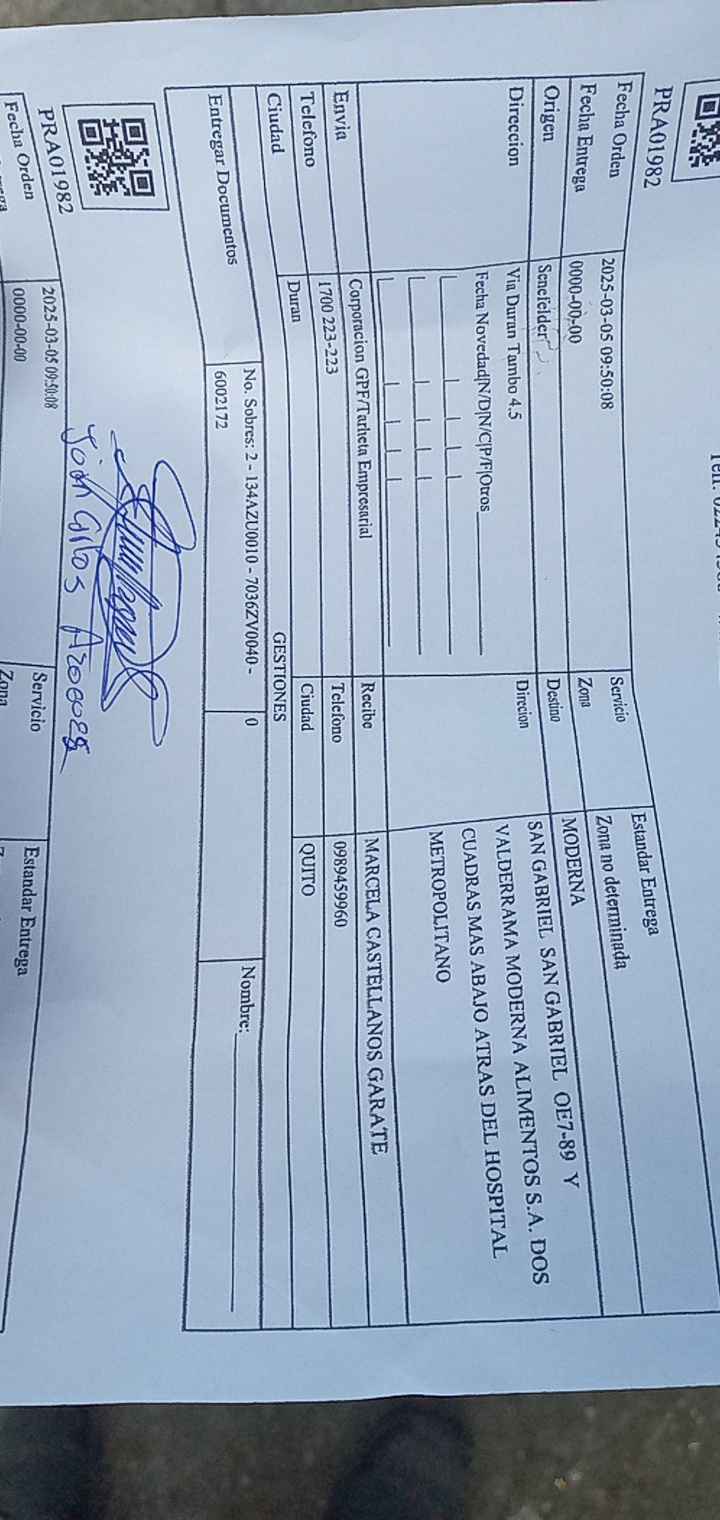 PRA01982
Fecha Orden 2025-03-05 09:50:08 Servicio Estandar Entrega
Fecha Entrega 0000-00-00 Zona Zona no determinada
Origen Senefelder Destino MODERNA
Direccion Via Duran Tambo 4.5 Direcion SAN GABRIEL SAN GABRIEL OE7-89 Y
VALDERRAMA MODERNA ALIMENTOS S.A. DOS
CUADRAS MAS ABAJO ATRAS DEL HOSPITAL
METROPOLITANO
Fecha Novedad|N/D|N/C|P/F|Otros
Envia Corporacion GPF/Tarheta Empresarial Recibe MARCELA CASTELLANOS GARATE
Telefono 1700 223-223 Telefono 0989459960
Ciudad Duran Ciudad QUITO
GESTIONES
Entregar Documentos No. Sobres: 2 - 134AZU0010 - 7036ZV0040 - 0 Nombre:
6002172
PRA01982
Fecha Orden 2025-03-05 09:50:08 Servicio Estandar Entrega
0000-00-00 Zona